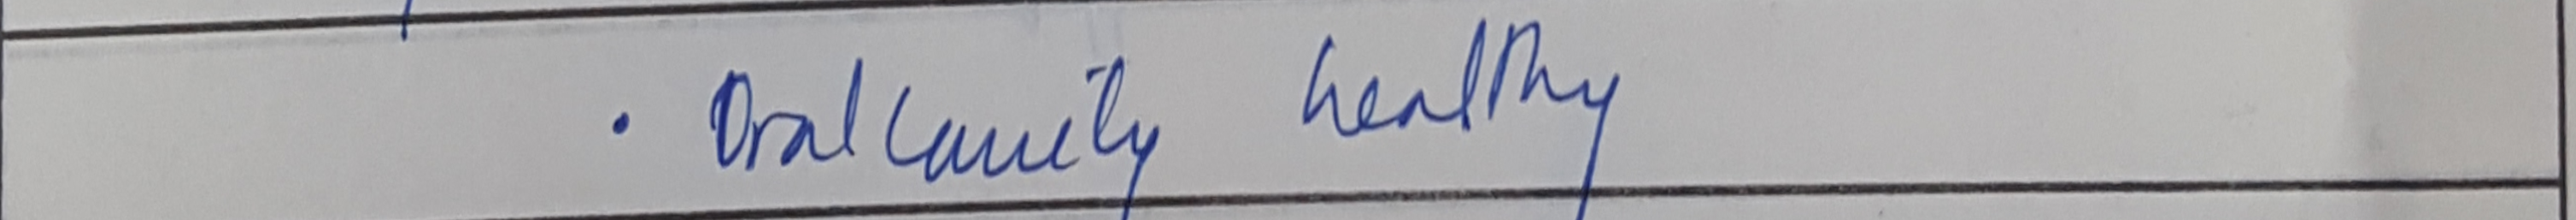 . Oral cavity healthy